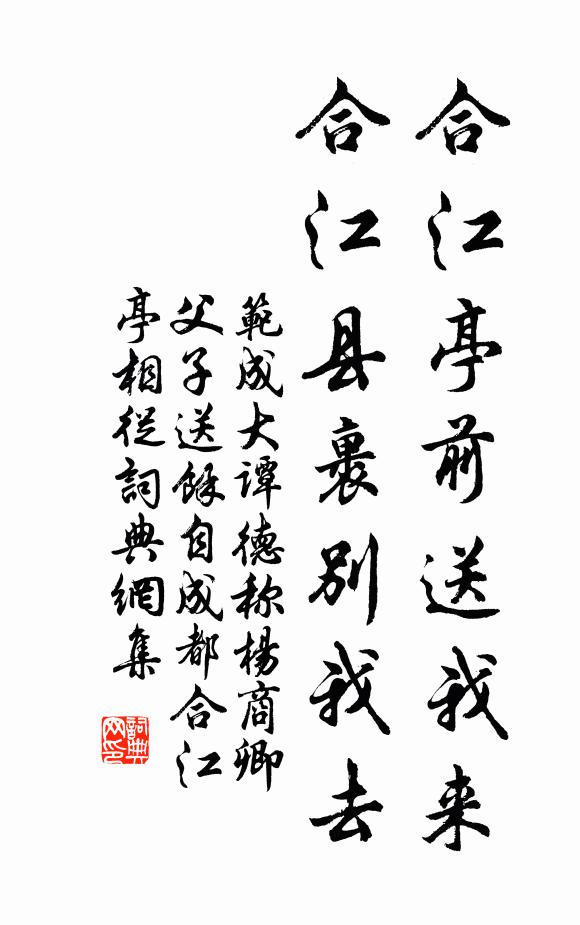 合江亭前送我来
合江县裹别我去
範成大谭德称楊商卿
父子送餘自成都合江
亭相從詞典網集
詞典网印